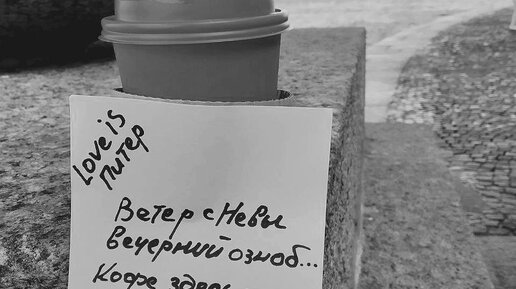 Love is
Питер
Ветер с Невы
вечерний озноб...
Кофе